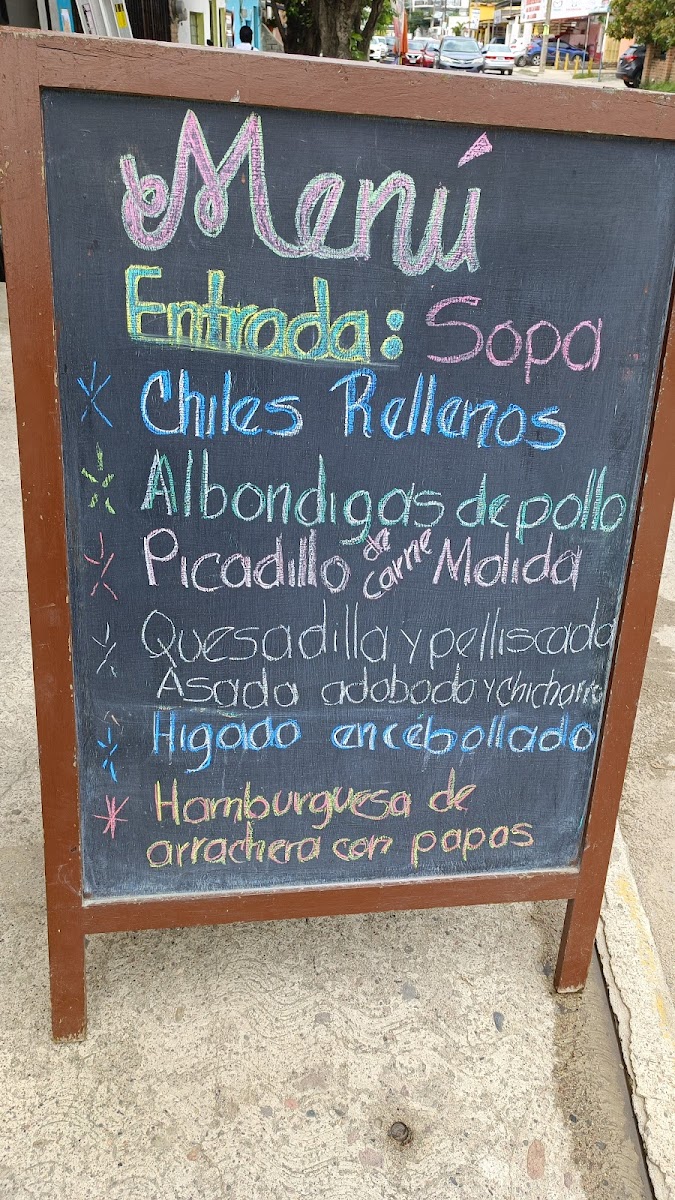 Menú
Entrada: Sopa
Chiles Rellenos
Albondigas de pollo
Picadillo de carne Molida
Quesadilla y pelliscada
Asada adobado y chicharro
Higado encebollado
Hamburguesa de
arrachera con papas